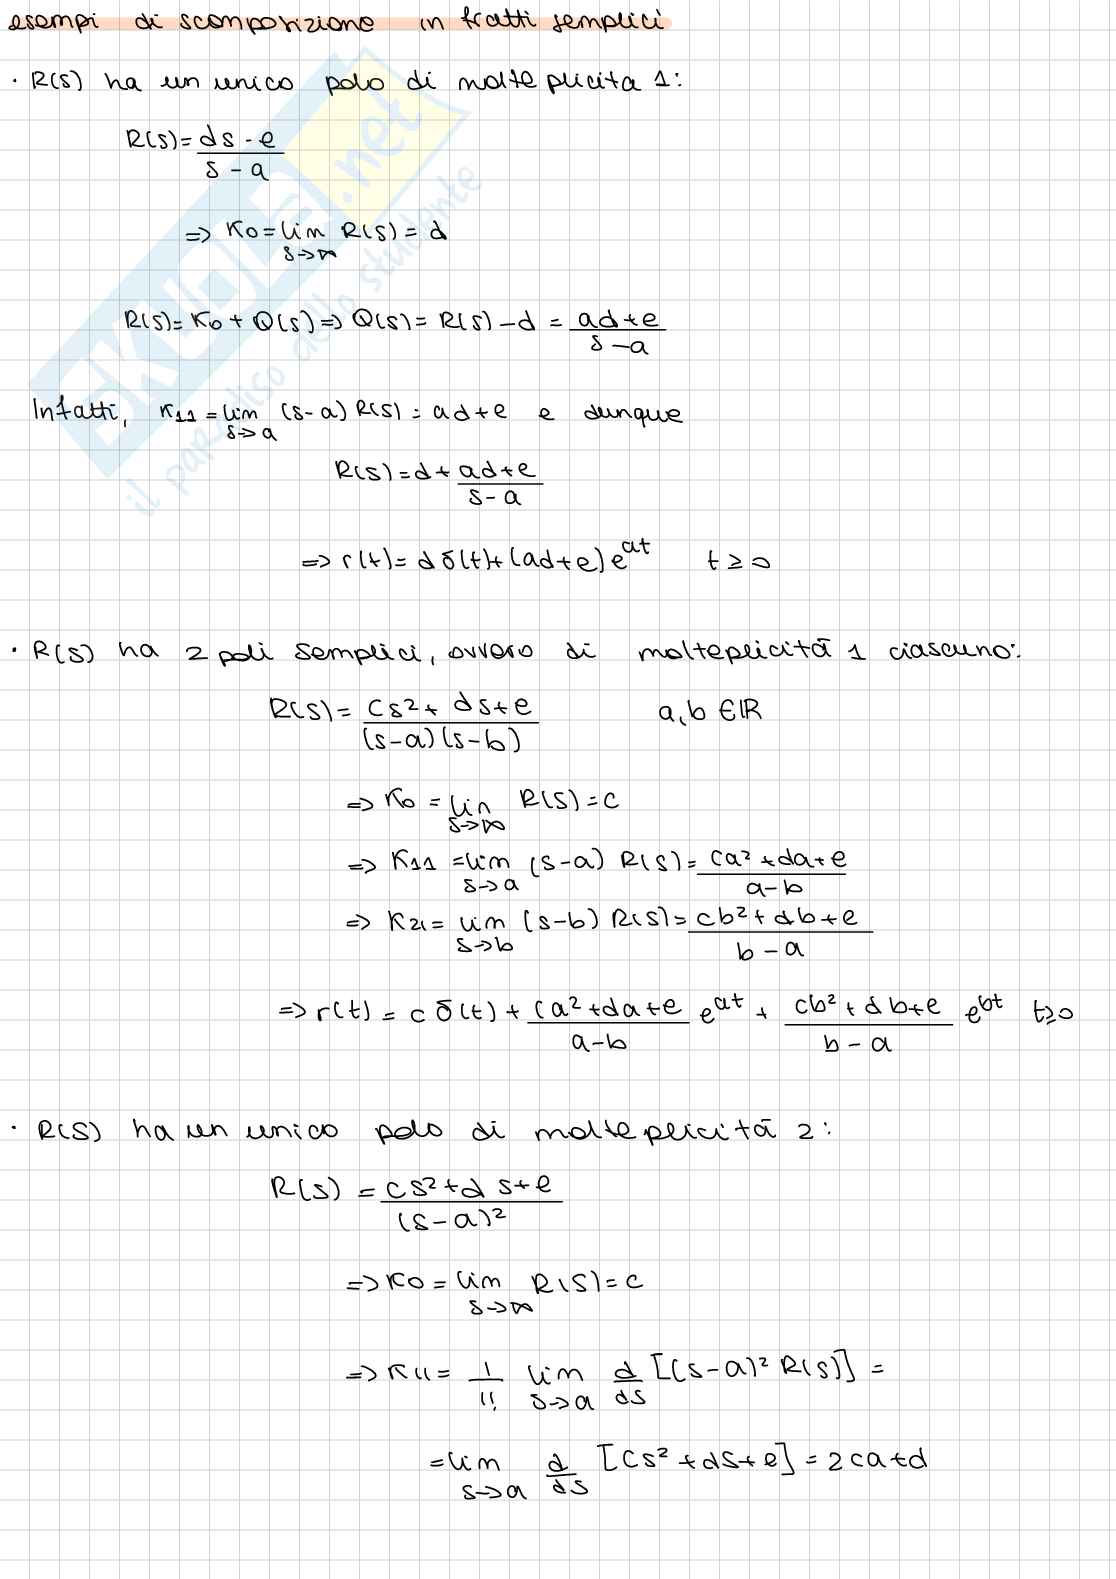 esempi di scomposizione in fratti semplici
· R(s) ha un unico polo di molteplicita 1:
R(s) = (ds - e)/(s - a)
=> K0 = lim s→∞ R(s) = d
R(s) = K0 + Q(s) => Q(s) = R(s) - d = (ad + e)/(s - a)
Infatti, K11 = lim s→a (s-a) R(s) = ad+e e dunque
R(s) = d + (ad+e)/(s-a)
=> r(t) = d δ(t) + (ad+e) e^{at} t ≥ 0
· R(s) ha 2 poli semplici, ovvero di molteplicità 1 ciascuno:
R(s) = (cs² + ds + e)/((s-a)(s-b)) a,b ∈ ℝ
=> K0 = lim s→∞ R(s) = c
=> K11 = lim s→a (s-a) R(s) = (ca² + da + e)/(a-b)
=> K21 = lim s→b (s-b) R(s) = (cb² + db + e)/(b-a)
=> r(t) = c δ(t) + (ca² + da + e)/(a-b) e^{at} + (cb² + db + e)/(b-a) e^{bt} t≥0
· R(s) ha un unico polo di molteplicità 2:
R(s) = (cs² + ds + e)/(s-a)²
=> K0 = lim s→∞ R(s) = c
=> K11 = 1/1! lim s→a d/ds [(s-a)² R(s)] =
= lim s→a d/ds [cs² + ds + e] = 2ca+d
SKUOLA.net
il paradiso dello studente